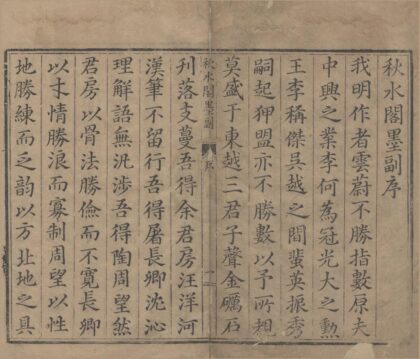 秋水閣墨副序
我明作者雲蔚不勝指數原夫
中興之業李何為冠光大之勲
王李稱傑吳越之間蜚英振秀
嗣起狎盟亦不勝數以予所覩
莫盛于東越三君子聲金礪石
秋水閣墨副 序 一
刋落支蔓吾得余君房汪洋河
漢筆不留行吾得屠長卿沈沁
理解語無汎涉吾得陶周望然
君房以骨法勝儉而不寬長卿
以才情勝浪而寡制周望以性
地勝練而乏韵以方北地之具